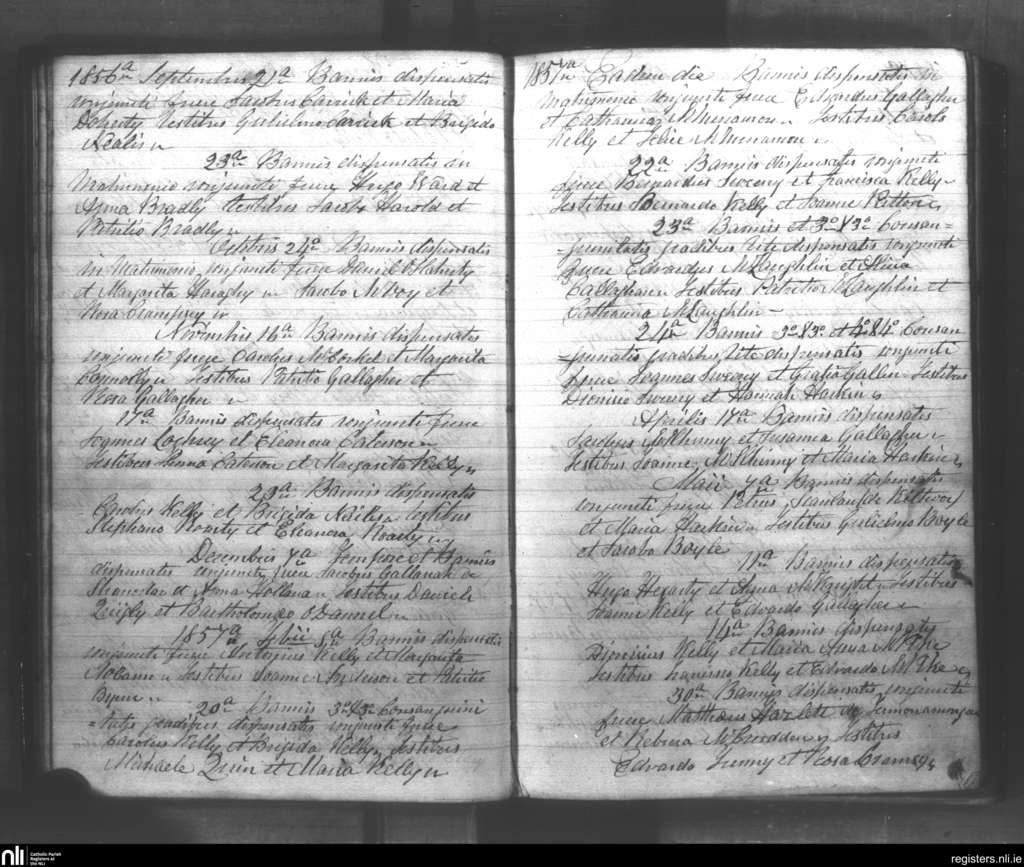 1856 Septembris 21a Bannis dispensatis
conjuncti fuere Jacobus Carrick et Maria
Doherty Testibus Gulielmo Carrick et Brigida
Nealis
23a Bannis dispensatis in
Matrimonio conjuncti fuere Hugo Ward et
Anna Bradly Testibus Jacobo Harold et
Patritio Bradly
Octobris 24a Bannis dispensatis
in Matrimonio conjuncti fuere Daniel O'Flaherty
et Margarita Jacobo McVoy et
Rosa
Novembris 16a Bannis dispensatis
conjuncti fuere Carolus McCorkel et Margarita
Connolly Testibus Patritio Gallagher et
Rosa Gallagher
17a Bannis dispensatis conjuncti fuere
Joannes et Eleanora Caterson
Testibus Anna Caterson et Margarita Kelly
23a Bannis dispensatis
Carolus Kelly et Brigida Neilis Testibus
Stephano Roarty et Eleanora Roarty
Decembris 7a Tempore et Bannis
dispensatis conjuncti fuere Jacobus Gallanah de
et Anna Holland Testibus Daniele
Quigly et Bartholomeo O'Donnel
1857 8a Bannis dispensatis
conjuncti fuere Kelly et Margarita
Testibus Joanne Anderson et Patritio
Byrne
20a Bannis 3o & 3o Consanguini
=tatis gradibus dispensatis conjuncti fuere
Carolus Kelly et Brigida Kelly Testibus
Michaele Quin et Maria Kelly
1857 Eadem die Bannis dispensatis in
Matrimonio conjuncti fuere Edvardus Gallagher
et Catharina McMenamon Testibus Carolo
Kelly et McMenamon
22a Bannis dispensatis conjuncti
fuere Bernardus Sweeny et Francisca Kelly
Testibus Bernardo Kelly et Joanne
23a Bannis et 3o & 3o Consan=
=guinitatis gradibus rite dispensatis conjuncti
fuere Edvardus McLaughlin et
Callaghan Testibus Patritio McLaughlin et
Catharina McLaughlin
24a Bannis 3o & 3o et 4o & 4o Consan
=guinitatis gradibus rite dispensatis conjuncti
fuere Joannes Sweeny et Gratia Gallen Testibus
Dionisio Sweeny et Hannah Harkin
Aprilis 17a Bannis dispensatis
Jacobus McIlhinny et Susanna Gallagher
Testibus Joanne McIlhinny et Maria Harkin
Maii 7a Bannis dispensatis
conjuncti fuere Petrus de
et Maria Harkin Testibus Gulielmo Boyle
et Jacobo Boyle
11a Bannis dispensatis
Hugo Hegarty et Anna McKnight Testibus
Joanne Kelly et Edvardo Gallagher
14a Bannis dispensatis
Dionisius Kelly et Maria Anna McKine
Testibus Kelly et Edvardo
30a Bannis dispensatis conjuncti
fuere Matthaeus Hazlett de Termonamongan
et Rebecca Testibus
Edvardo et Rosa
nli
Catholic Parish
Registers at
the NLI
registers.nli.ie